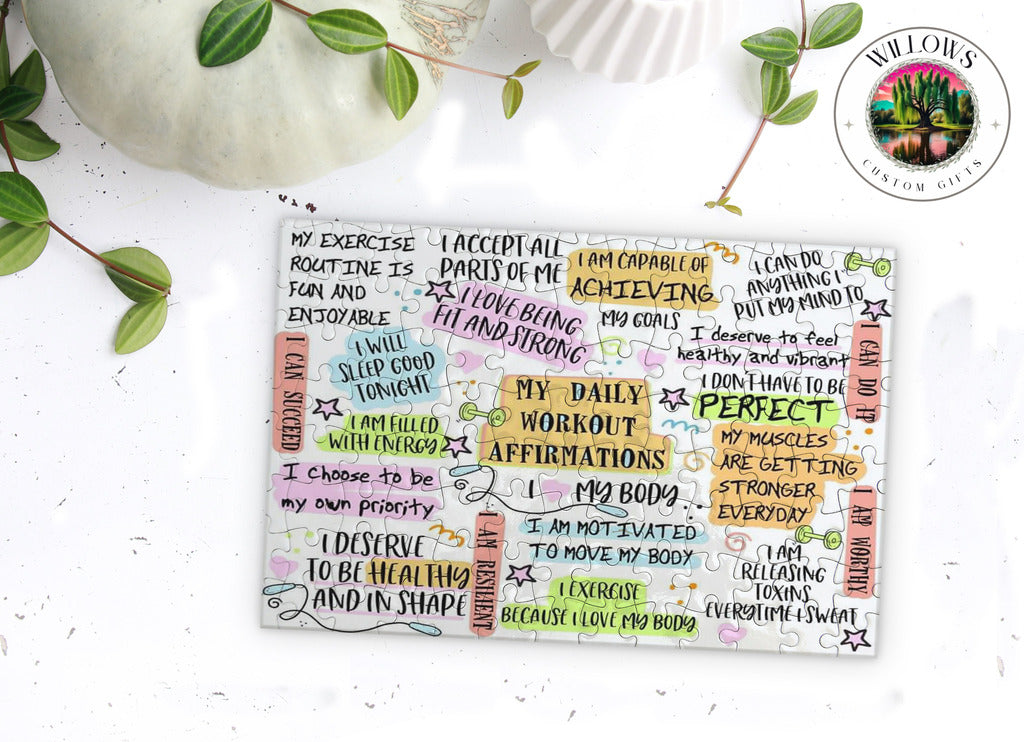 WILLOWS
CUSTOM GIFTS
MY EXERCISE
ROUTINE IS
FUN AND
ENJOYABLE
I ACCEPT ALL
PARTS OF ME
I AM CAPABLE OF
ACHIEVING
MY GOALS
I CAN DO
ANYTHING I
PUT MY MIND TO
I LOVE BEING
FIT AND STRONG
I deserve to feel
healthy and vibrant
I CAN DO IT
I CAN SUCCEED
I WILL
SLEEP GOOD
TONIGHT
MY DAILY
WORKOUT
AFFIRMATIONS
I DON'T HAVE TO BE
PERFECT
I AM FILLED
WITH ENERGY
MY MUSCLES
ARE GETTING
STRONGER
EVERYDAY
I choose to be
my own priority
I MY BODY
I AM WORTHY
I AM RESILIENT
I AM MOTIVATED
TO MOVE MY BODY
I DESERVE
TO BE HEALTHY
AND IN SHAPE
I EXERCISE
BECAUSE I LOVE MY BODY
I AM
RELEASING
TOXINS
EVERYTIME I SWEAT